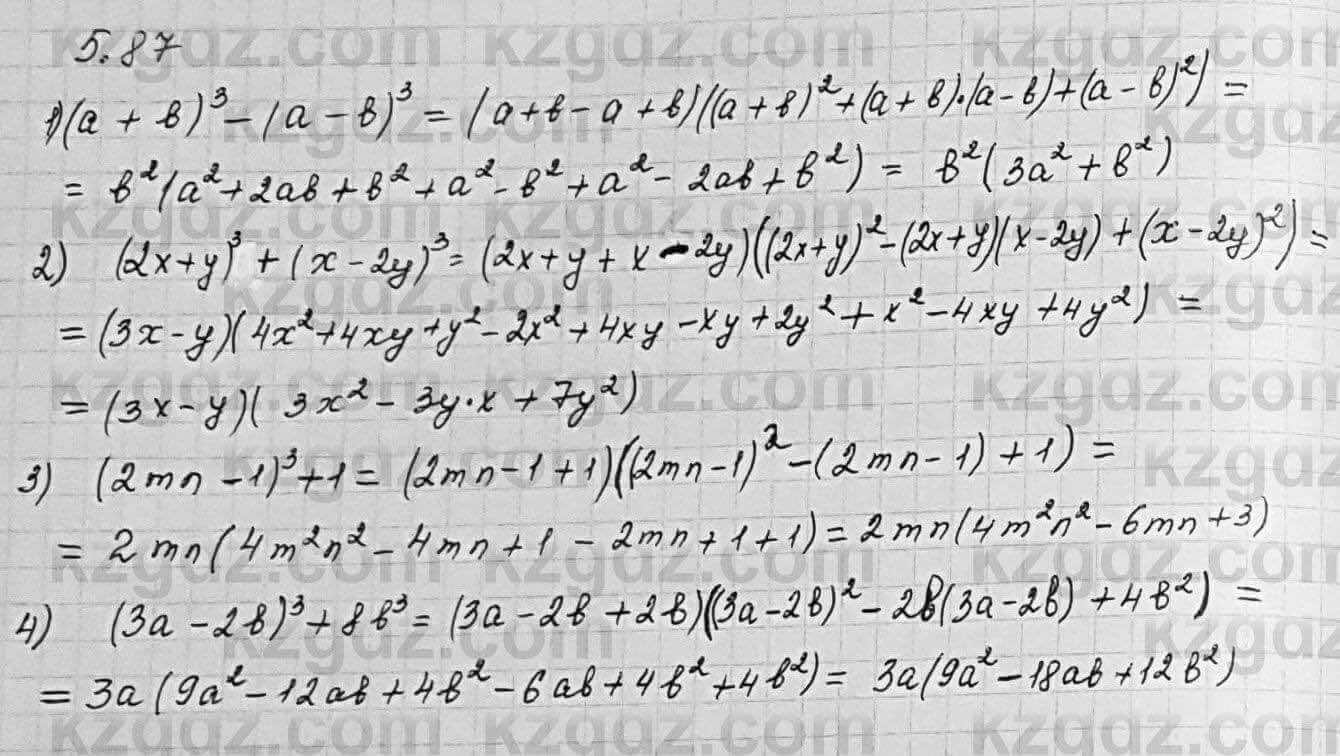 5.87
1) (a + b)³ - (a - b)³ = (a + b - a + b)((a + b)² + (a + b)·(a - b) + (a - b)²) =
= b²(a² + 2ab + b² + a² - b² + a² - 2ab + b²) = b²(3a² + b²)
2) (2x+y)³ + (x - 2y)³ = (2x + y + x - 2y)((2x+y)² - (2x+y)(x - 2y) + (x - 2y)²) =
= (3x - y)(4x² + 4xy + y² - 2x² + 4xy - xy + 2y² + x² - 4xy + 4y²) =
= (3x - y)(3x² - 3y·x + 7y²)
3) (2mn - 1)³ + 1 = (2mn - 1 + 1)((2mn - 1)² - (2mn - 1) + 1) =
= 2mn(4m²n² - 4mn + 1 - 2mn + 1 + 1) = 2mn(4m²n² - 6mn + 3)
4) (3a - 2b)³ + 8b³ = (3a - 2b + 2b)((3a - 2b)² - 2b(3a - 2b) + 4b²) =
= 3a(9a² - 12ab + 4b² - 6ab + 4b² + 4b²) = 3a(9a² - 18ab + 12b²)